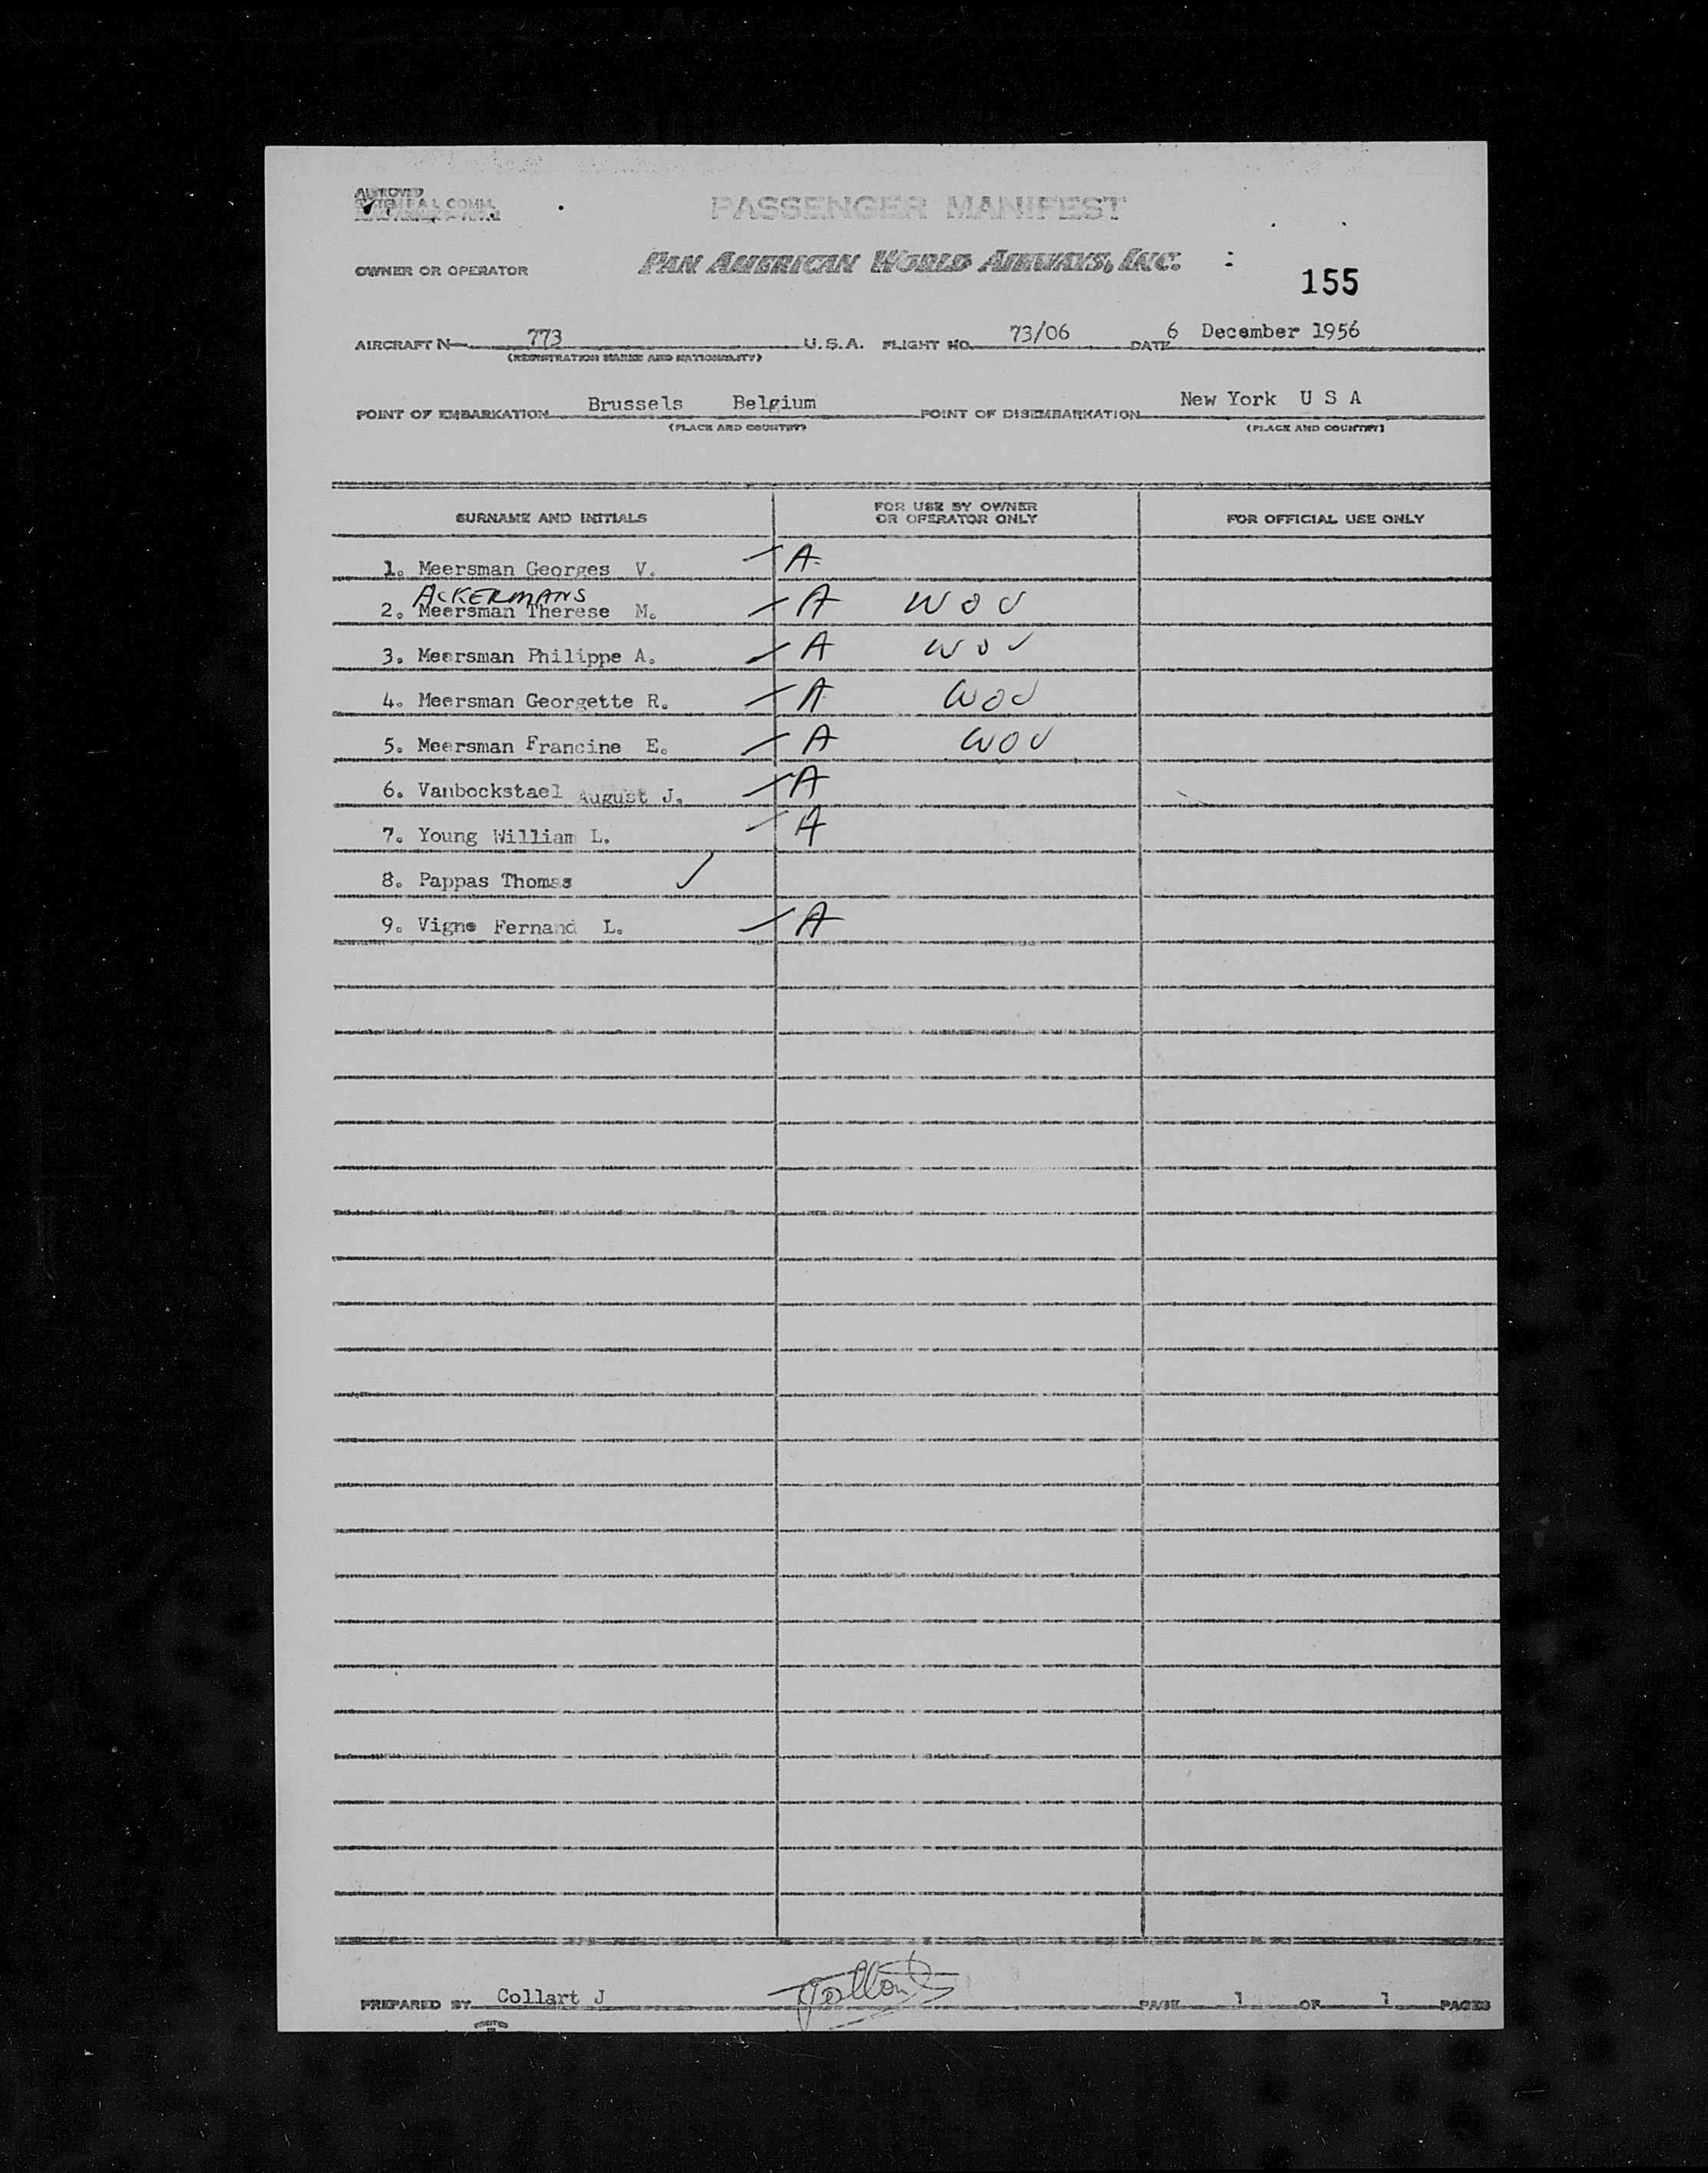 APPROVED
PASSENGER MANIFEST
OWNER OR OPERATOR PAN AMERICAN WORLD AIRWAYS, INC.
155
AIRCRAFT N 773 U.S.A. FLIGHT NO. 73/06 DATE 6 December 1956
(REGISTRATION MARKS AND NATIONALITY)
POINT OF EMBARKATION Brussels Belgium POINT OF DISEMBARKATION New York U S A
(PLACE AND COUNTRY) (PLACE AND COUNTRY)
SURNAME AND INITIALS FOR USE BY OWNER OR OPERATOR ONLY FOR OFFICIAL USE ONLY
1. Meersman Georges V. A
ACKERMANS
2. Meersman Therese M. A WOV
3. Meersman Philippe A. A WOV
4. Meersman Georgette R. A WOV
5. Meersman Francine E. A WOV
6. Vanbockstael August J. A
7. Young William L. A
8. Pappas Thomas
9. Vigne Fernand L. A
PREPARED BY Collart J PAGE 1 OF 1 PAGES